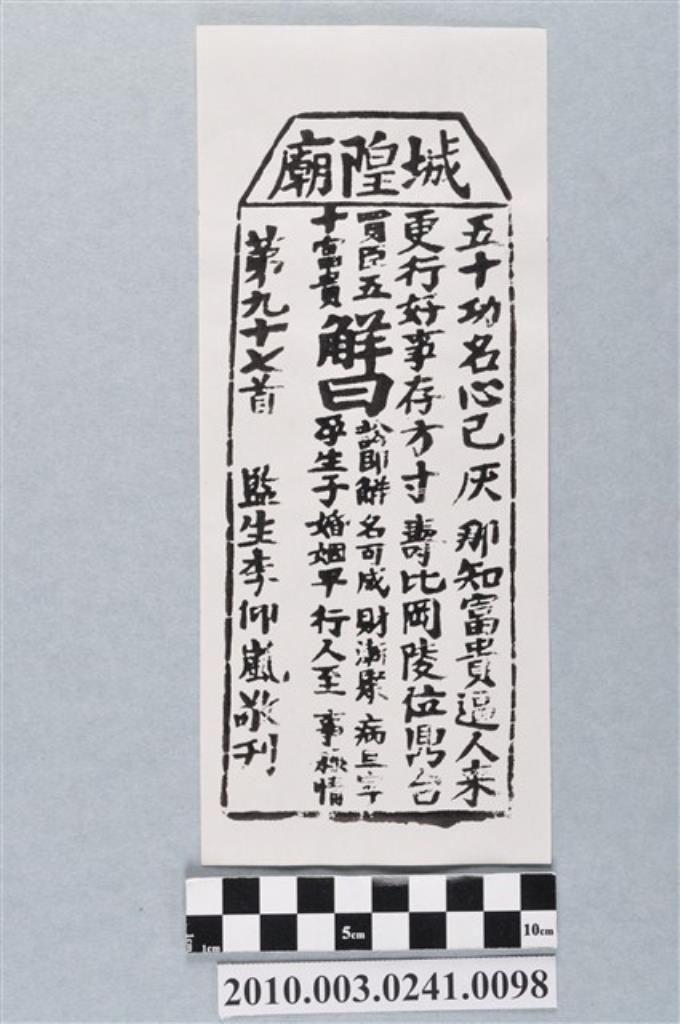 城隍廟
五十功名心已灰 那知富貴逼人來
更行好事存方寸 壽比岡陵位鼎台
買臣五十富貴
解曰
訟即解 名可成 財漸聚 病且寧
孕生子 婚姻平 行人至 事稱情
第九十七首 監生李仰嵐敬刊
5cm
10cm
1cm
2010.003.0241.0098